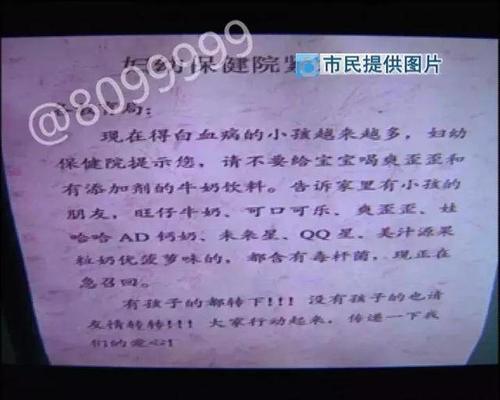 @8099999
市民提供图片
妇幼保健院紧
局:
现在得白血病的小孩越来越多,妇幼
保健院提示您,请不要给宝宝喝爽歪歪和
有添加剂的牛奶饮料。告诉家里有小孩的
朋友,旺仔牛奶、可口可乐、爽歪歪、娃
哈哈 AD 钙奶、未来星、QQ 星、美汁源果
粒奶优菠萝味的,都含有毒杆菌,现正在
急召回。
有孩子的都转下!!! 没有孩子的也请
友情转转!!! 大家行动起来,传递一下我
们的爱心!